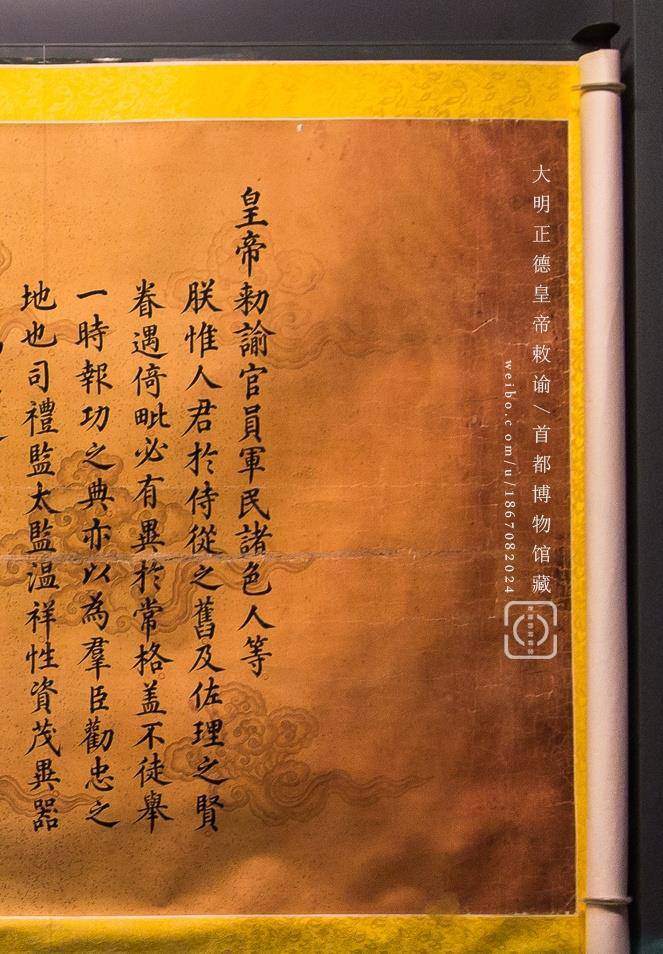 大明正德皇帝敕谕/首都博物馆藏
weibo.com/u/1867082024
皇帝勑諭官員軍民諸色人等
朕惟人君於侍從之舊及佐理之賢
眷遇倚毗必有異於常格盖不徒舉
一時報功之典亦以為羣臣勸忠之
地也司禮監太監温祥性資茂異器